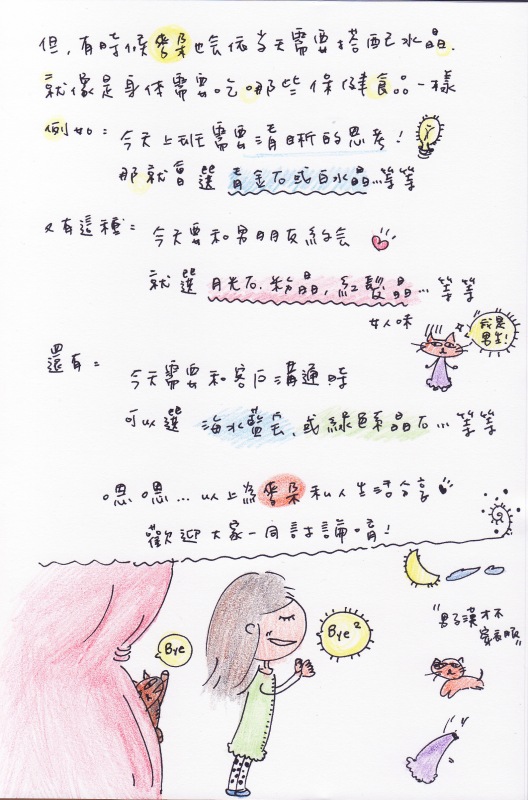 但,有時候雫朵也會依當天需要搭配水晶.
就像是身体需要吃哪些保健食品一樣
例如: 今天上班需要清晰的思考!
那就會選 青金石或白水晶...等等
又有這種= 今天要和男朋友約會
就選月光石.粉晶,紅髮晶...等等
女人味
我是男生!
還有= 今天需要和客戶溝通時
可以選 海水藍宝,或綠色系晶石...等等
嗯嗯...以上為雫朵私人生活分享
歡迎大家一同討論唷!
Bye
Bye²
"男子漢才不穿衣服"